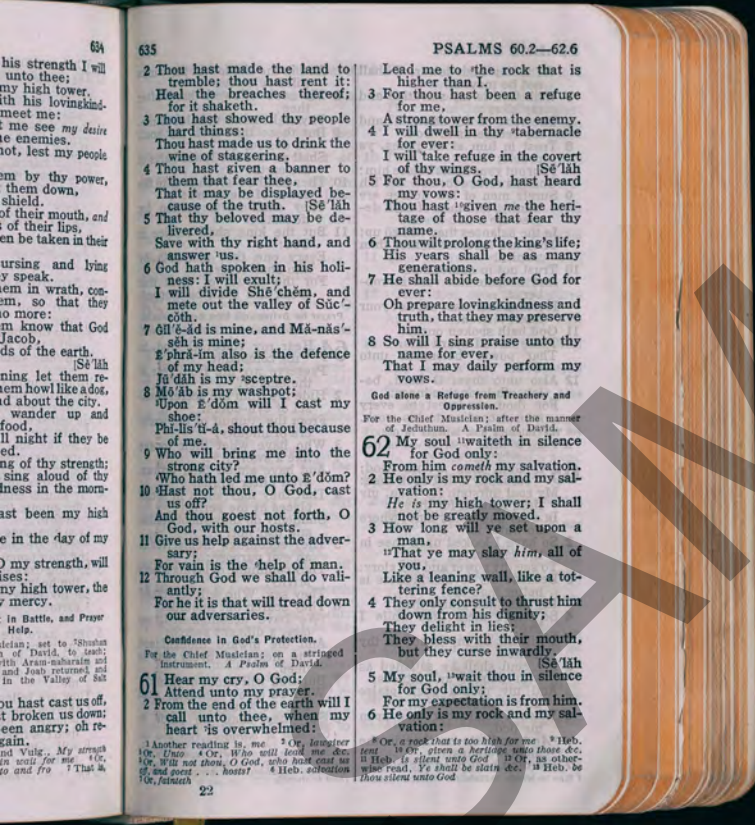 634
his strength I will
unto thee;
my high tower.
ith his lovingkind-
meet me:
t me see my desire
ne enemies.
not, lest my people
em by thy power,
them down,
shield.
of their mouth, and
s of their lips,
en be taken in their
ursing and lying
y speak.
nem in wrath, con-
em, so that they
no more:
em know that God
Jacob,
ds of the earth.
[Sē´läh
ning let them re-
hem howl like a dog,
nd about the city.
wander up and
food,
ll night if they be
ed.
ng of thy strength;
sing aloud of thy
dness in the morn-
ast been my high
e in the day of my
O my strength, will
ises:
my high tower, the
y mercy.
t in Battle, and Prayer
Help.
sician; set to Shushan
m of David, to teach;
with Aram-naharaim and
and Joab returned, and
in the Valley of Salt
ou hast cast us off,
t broken us down;
een angry; oh re-
gain.
nd Vulg., My strength
in wait for me Or,
to and fro That is,
635
2 Thou hast made the land to
tremble; thou hast rent it:
Heal the breaches thereof;
for it shaketh.
3 Thou hast showed thy people
hard things:
Thou hast made us to drink the
wine of staggering.
4 Thou hast given a banner to
them that fear thee,
That it may be displayed be-
cause of the truth. [Sē´läh
5 That thy beloved may be de-
livered,
Save with thy right hand, and
answer ¹us.
6 God hath spoken in his holi-
ness: I will exult;
I will divide Shē´chĕm, and
mete out the valley of Sŭc´-
cōth.
7 Gĭl´ĕ-ăd is mine, and Mă-năs´-
sĕh is mine;
Ē´phră-ĭm also is the defence
of my head;
Jū´dăh is my ²sceptre.
8 Mō´ăb is my washpot;
³Upon Ē´dŏm will I cast my
shoe:
Phĭ-lĭs´tĭ-ȧ, shout thou because
of me.
9 Who will bring me into the
strong city?
⁴Who hath led me unto Ē´dŏm?
10 ⁵Hast not thou, O God, cast
us off?
And thou goest not forth, O
God, with our hosts.
11 Give us help against the adver-
sary;
For vain is the ⁶help of man.
12 Through God we shall do vali-
antly;
For he it is that will tread down
our adversaries.
Confidence in God's Protection.
For the Chief Musician; on a stringed
instrument. A Psalm of David.
61 Hear my cry, O God;
Attend unto my prayer.
2 From the end of the earth will I
call unto thee, when my
heart ⁷is overwhelmed:
¹ Another reading is, me ² Or, lawgiver
³ Or, Unto ⁴ Or, Who will lead me &c.
⁵ Or, Wilt not thou, O God, who hast cast us
off, and goest . . . hosts? ⁶ Heb. salvation
⁷ Or, fainteth
22
PSALMS 60.2—62.6
Lead me to ⁸the rock that is
higher than I.
3 For thou hast been a refuge
for me,
A strong tower from the enemy.
4 I will dwell in thy ⁹tabernacle
for ever:
I will take refuge in the covert
of thy wings. [Sē´läh
5 For thou, O God, hast heard
my vows:
Thou hast ¹⁰given me the heri-
tage of those that fear thy
name.
6 Thou wilt prolong the king's life;
His years shall be as many
generations.
7 He shall abide before God for
ever:
Oh prepare lovingkindness and
truth, that they may preserve
him.
8 So will I sing praise unto thy
name for ever,
That I may daily perform my
vows.
God alone a Refuge from Treachery and
Oppression.
For the Chief Musician; after the manner
of Jeduthun. A Psalm of David.
62 My soul ¹¹waiteth in silence
for God only:
From him cometh my salvation.
2 He only is my rock and my sal-
vation:
He is my high tower; I shall
not be greatly moved.
3 How long will ye set upon a
man,
¹²That ye may slay him, all of
you,
Like a leaning wall, like a tot-
tering fence?
4 They only consult to thrust him
down from his dignity;
They delight in lies;
They bless with their mouth,
but they curse inwardly.
[Sē´läh
5 My soul, ¹³wait thou in silence
for God only;
For my expectation is from him.
6 He only is my rock and my sal-
vation:
⁸ Or, a rock that is too high for me ⁹ Heb.
tent ¹⁰ Or, given a heritage unto those &c.
¹¹ Heb. is silent unto God ¹² Or, as other-
wise read, Ye shall be slain &c. ¹³ Heb. be
thou silent unto God